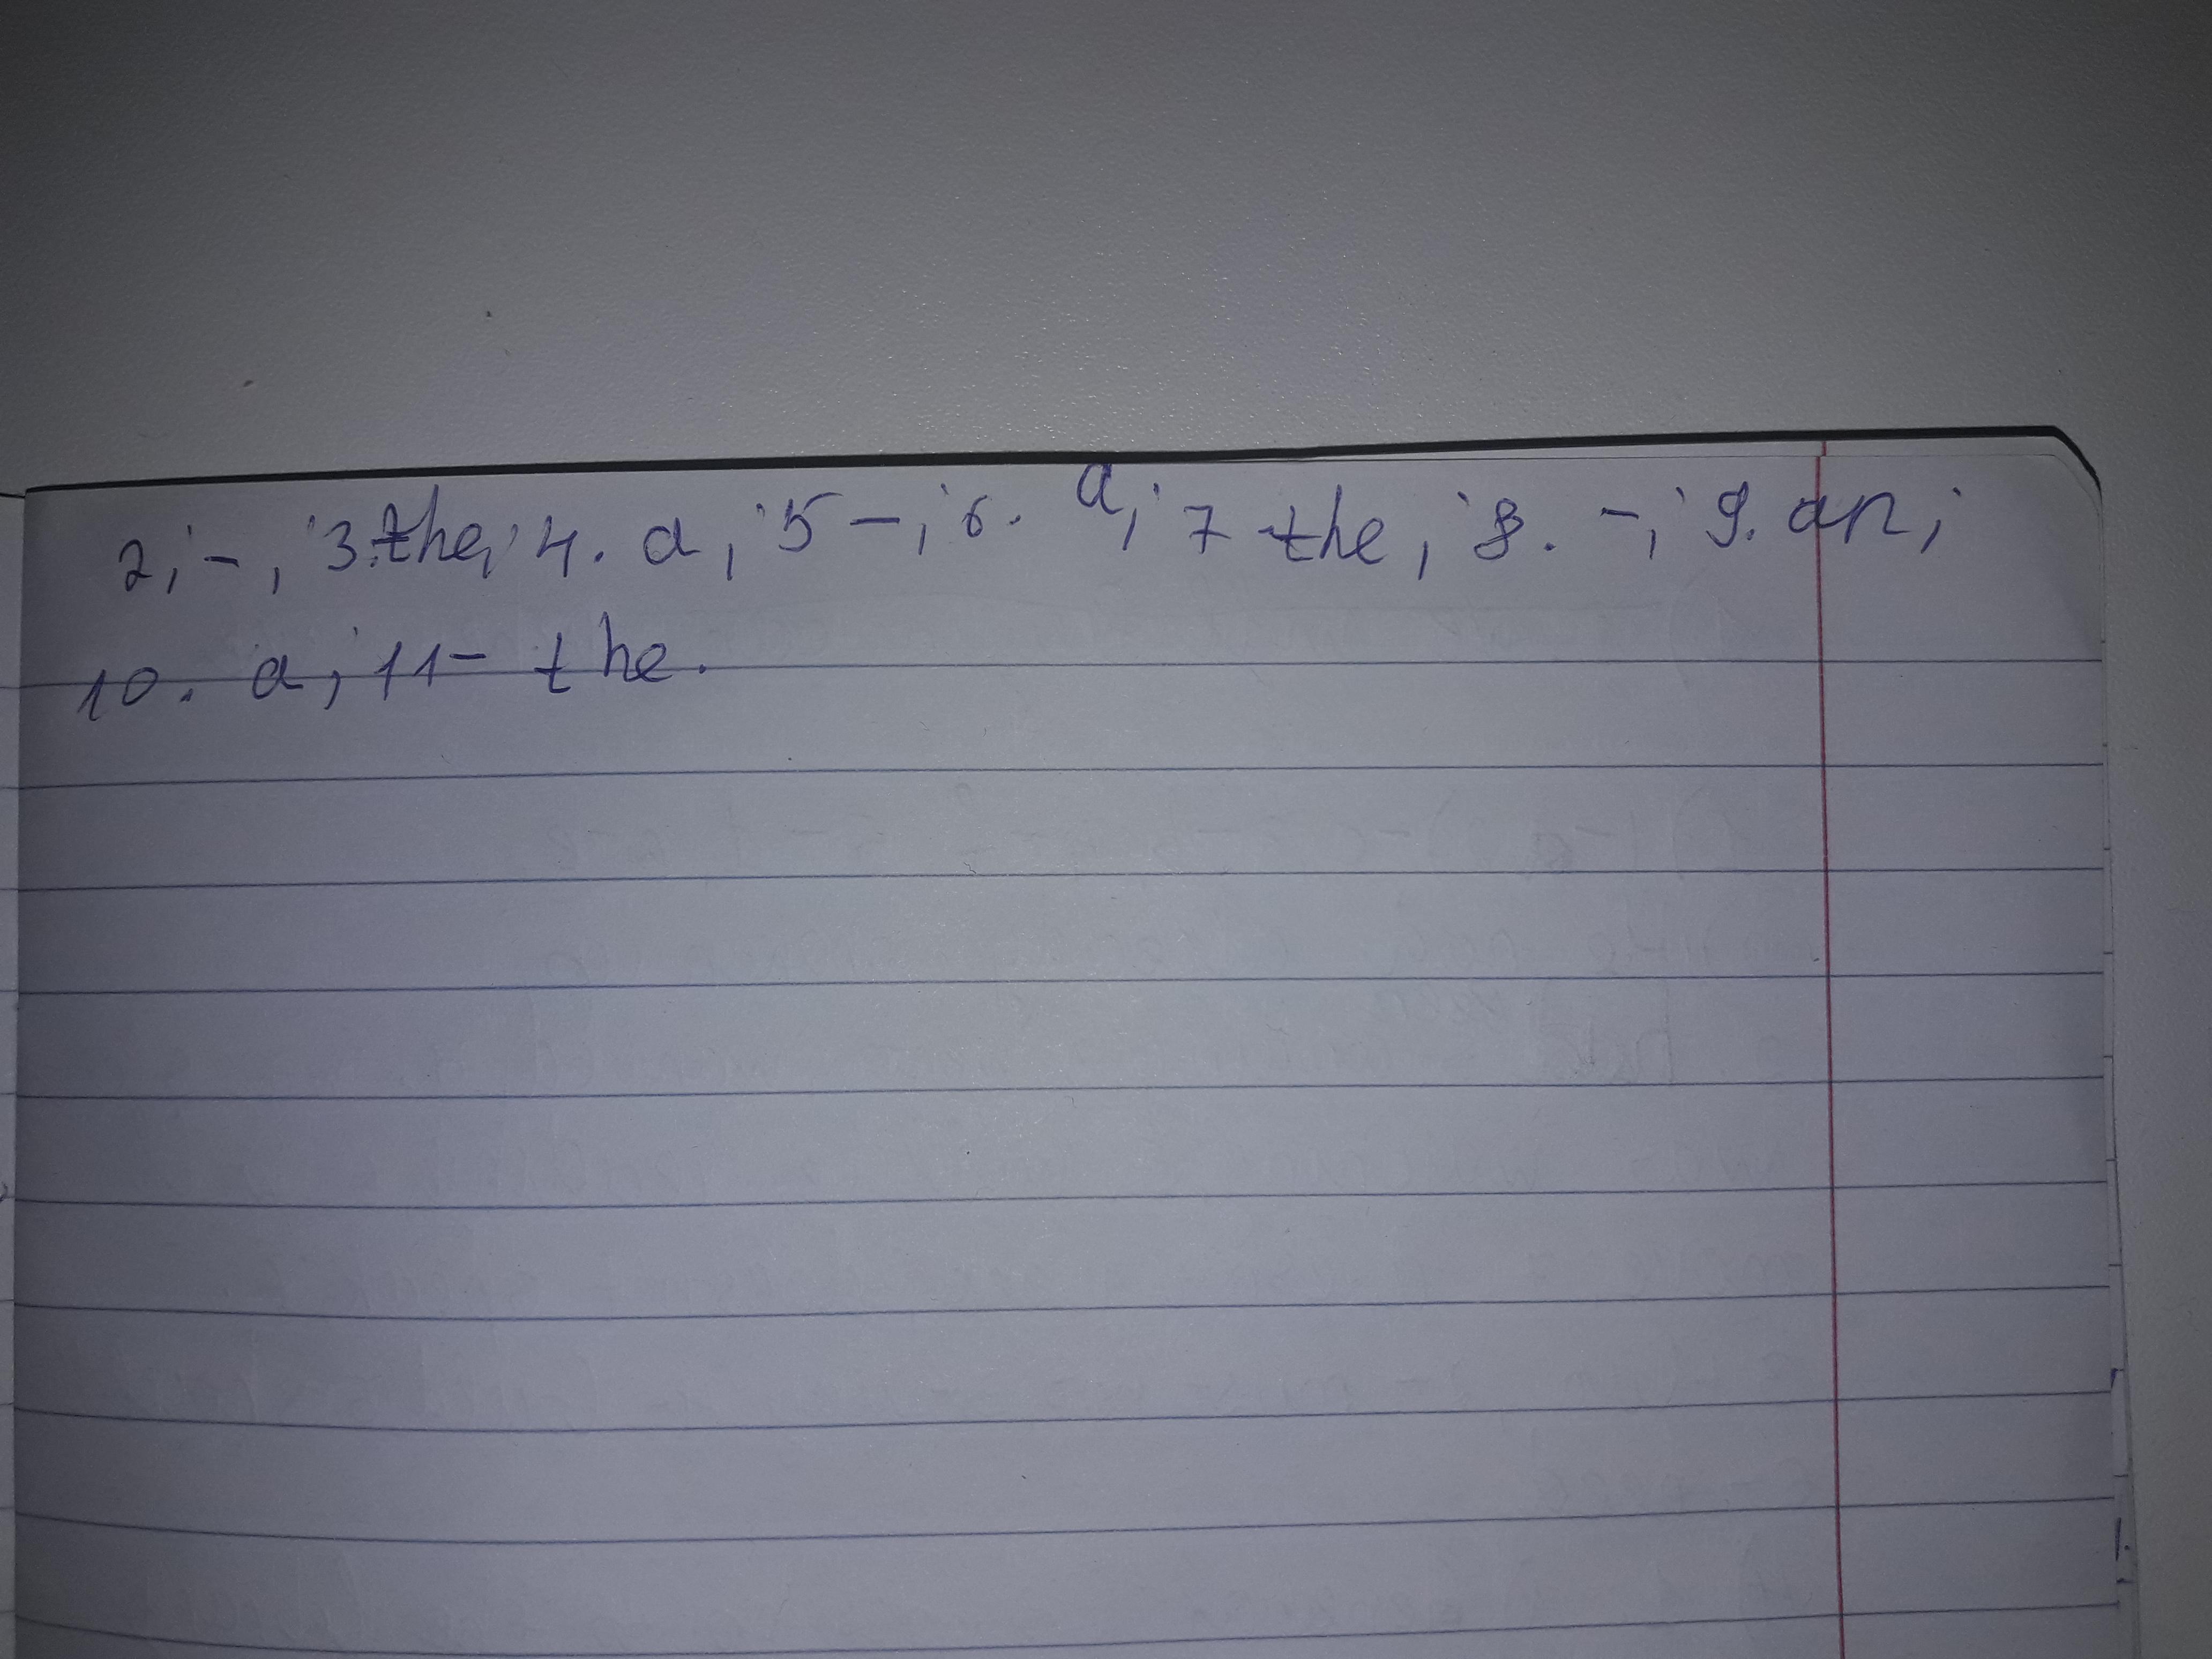 2; -; 3.the; 4. a; 5 -; 6. a; 7 the; 8. -; 9. an;
10. a; 11- the.